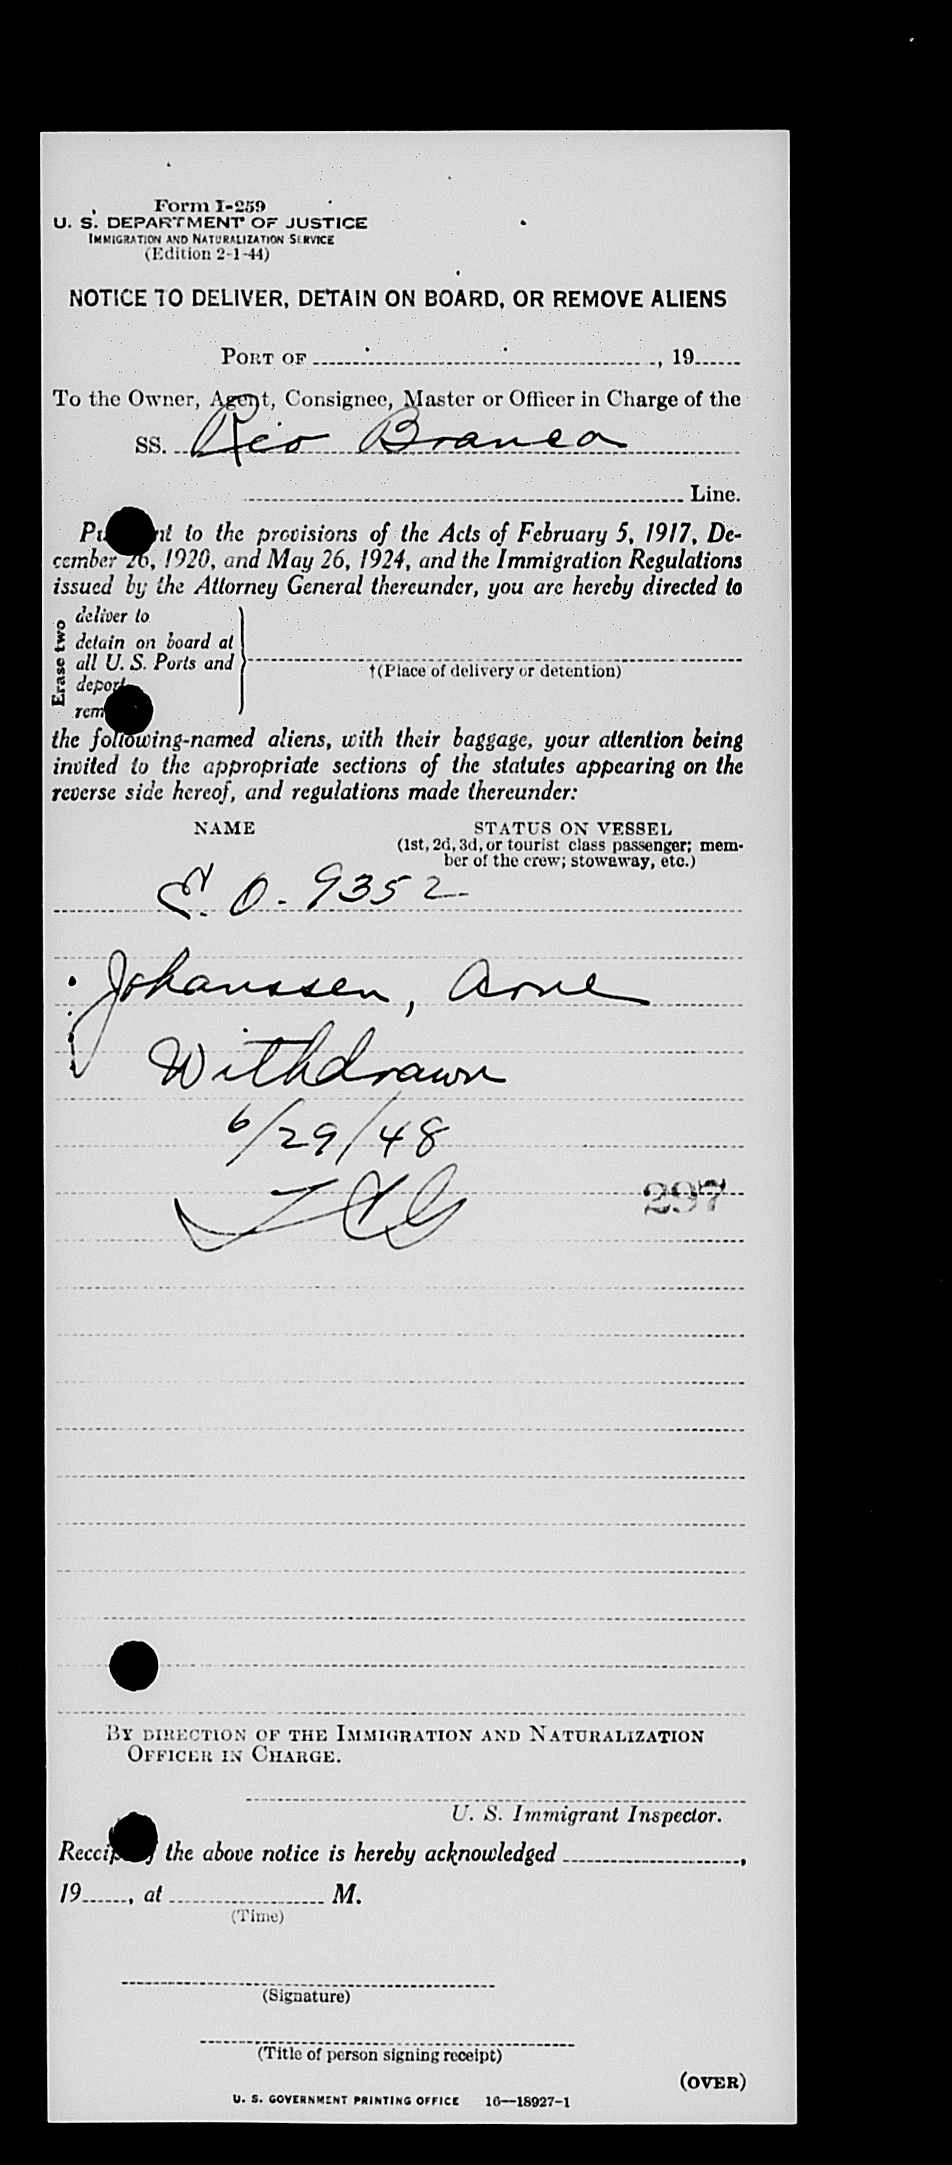 Form I-259
U. S. DEPARTMENT OF JUSTICE
IMMIGRATION AND NATURALIZATION SERVICE
(Edition 2-1-44)
NOTICE TO DELIVER, DETAIN ON BOARD, OR REMOVE ALIENS
PORT OF , 19
To the Owner, Agent, Consignee, Master or Officer in Charge of the
SS. Rio Branco
Line.
Pu nt to the provisions of the Acts of February 5, 1917, De-
cember 26, 1920, and May 26, 1924, and the Immigration Regulations
issued by the Attorney General thereunder, you are hereby directed to
Erase two
deliver to
detain on board at
all U. S. Ports and
deport
rem
†(Place of delivery or detention)
the following-named aliens, with their baggage, your attention being
invited to the appropriate sections of the statutes appearing on the
reverse side hereof, and regulations made thereunder:
NAME STATUS ON VESSEL
(1st, 2d, 3d, or tourist class passenger; mem-
ber of the crew; stowaway, etc.)
E. O. 9352
Johanssen, Arne
Withdrawn
6/29/48
297
BY DIRECTION OF THE IMMIGRATION AND NATURALIZATION
OFFICER IN CHARGE.
U. S. Immigrant Inspector.
Receip f the above notice is hereby acknowledged ,
19 , at M.
(Time)
(Signature)
(Title of person signing receipt)
(OVER)
U. S. GOVERNMENT PRINTING OFFICE 16—18927-1